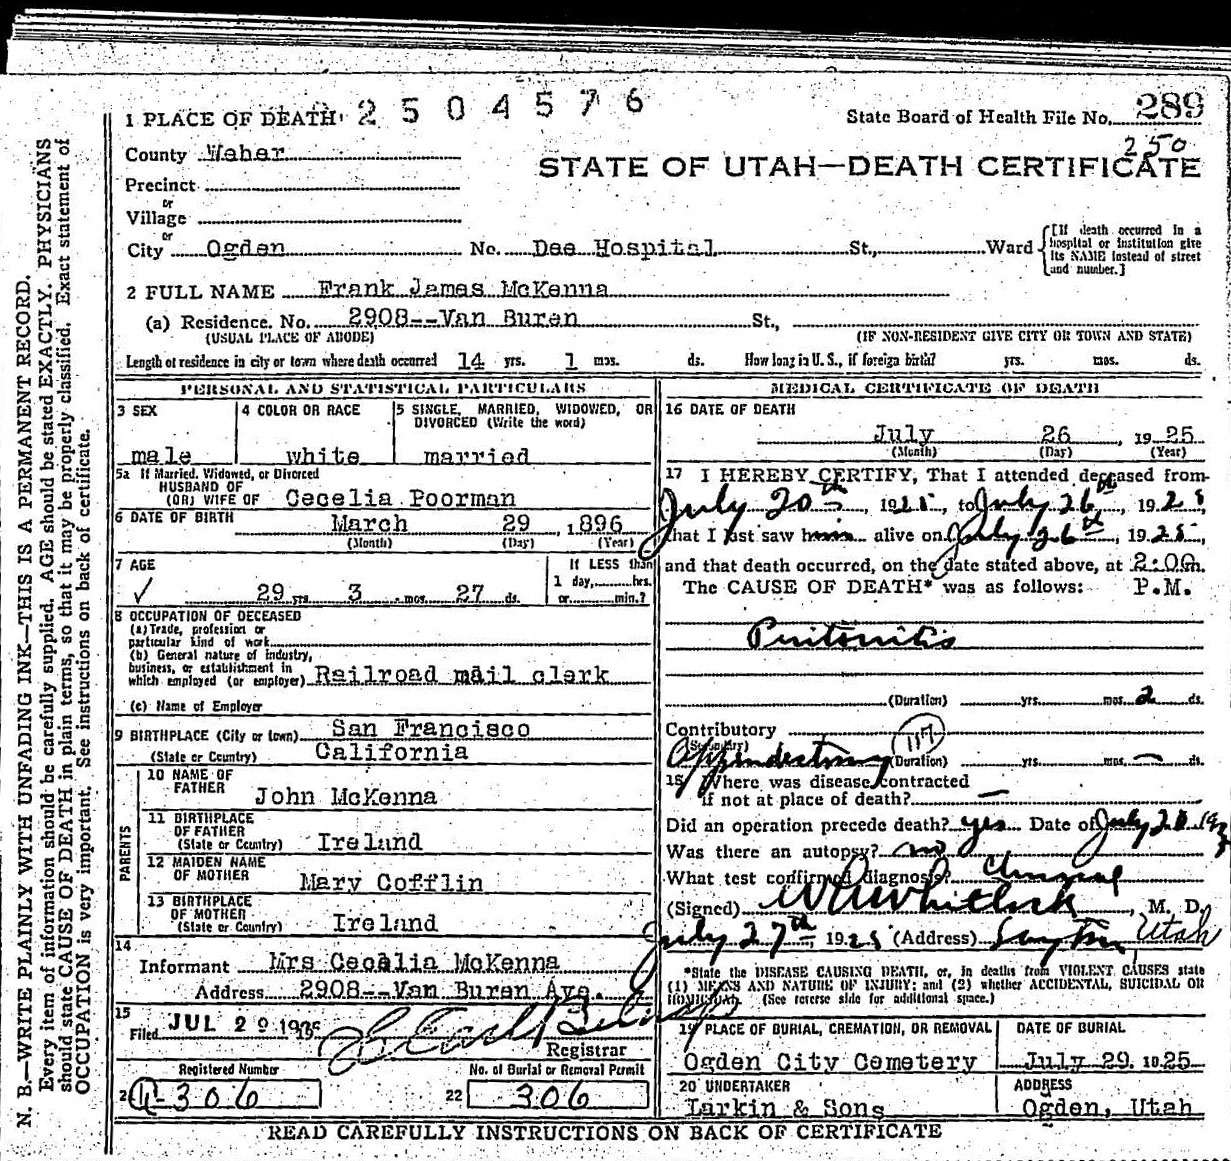 1 PLACE OF DEATH 2 5 0 4 5 7 6
State Board of Health File No. 289
250
County Weber
STATE OF UTAH—DEATH CERTIFICATE
Precinct
or
Village
or
City Ogden No. Dee Hospital St., Ward
[If death occurred in a hospital or institution give its NAME instead of street and number.]
2 FULL NAME Frank James McKenna
(a) Residence. No. 2908--Van Buren St.,
(USUAL PLACE OF ABODE) (IF NON-RESIDENT GIVE CITY OR TOWN AND STATE)
Length of residence in city or town where death occurred 14 yrs. 1 mos. ds. How long in U. S., if foreign birth? yrs. mos. ds.
PERSONAL AND STATISTICAL PARTICULARS
3 SEX
male
4 COLOR OR RACE
white
5 SINGLE, MARRIED, WIDOWED, OR
DIVORCED (Write the word)
married
5a If Married, Widowed, or Divorced
HUSBAND OF
(OR) WIFE OF Cecelia Poorman
6 DATE OF BIRTH March 29 , 1896
(Month) (Day) (Year)
7 AGE
29 yrs. 3 mos. 27 ds.
If LESS than
1 day, hrs.
or min.?
8 OCCUPATION OF DECEASED
(a) Trade, profession or
particular kind of work
(b) General nature of industry,
business, or establishment in
which employed (or employer) Railroad mail clerk
(c) Name of Employer
9 BIRTHPLACE (City or town) San Francisco
(State or Country) California
PARENTS
10 NAME OF
FATHER John McKenna
11 BIRTHPLACE
OF FATHER
(State or Country) Ireland
12 MAIDEN NAME
OF MOTHER Mary Cofflin
13 BIRTHPLACE
OF MOTHER
(State or Country) Ireland
14
Informant Mrs Cecelia McKenna
Address 2908--Van Buren Ave.
15
Filed JUL 29 1925
Registrar
Registered Number
306
No. of Burial or Removal Permit
22 306
MEDICAL CERTIFICATE OF DEATH
16 DATE OF DEATH
July 26 , 1925
(Month) (Day) (Year)
17 I HEREBY CERTIFY, That I attended deceased from
July 20th, 1925, to July 26th, 1925,
that I last saw him alive on July 26th, 1925,
and that death occurred, on the date stated above, at 2:00 m.
The CAUSE OF DEATH* was as follows: P.M.
Peritonitis
(Duration) yrs. mos. 2 ds.
Contributory
(Secondary) 117
Appendectomy (Duration) yrs. mos. — ds.
18 Where was disease contracted
if not at place of death? —
Did an operation precede death? yes Date of July 20 1925
Was there an autopsy? no
What test confirmed diagnosis? Clinical
(Signed) Whitlock, M. D.
July 27th 1925 (Address) Layton Utah
*State the DISEASE CAUSING DEATH, or, in deaths from VIOLENT CAUSES state
(1) MEANS AND NATURE OF INJURY; and (2) whether ACCIDENTAL, SUICIDAL OR
HOMICIDAL. (See reverse side for additional space.)
19 PLACE OF BURIAL, CREMATION, OR REMOVAL
Ogden City Cemetery
DATE OF BURIAL
July 29, 1925
20 UNDERTAKER
Larkin & Sons
ADDRESS
Ogden, Utah
READ CAREFULLY INSTRUCTIONS ON BACK OF CERTIFICATE
N. B.—WRITE PLAINLY WITH UNFADING INK—THIS IS A PERMANENT RECORD.
Every item of information should be carefully supplied. AGE should be stated EXACTLY. PHYSICIANS
should state CAUSE OF DEATH in plain terms, so that it may be properly classified. Exact statement of
OCCUPATION is very important. See instructions on back of certificate.